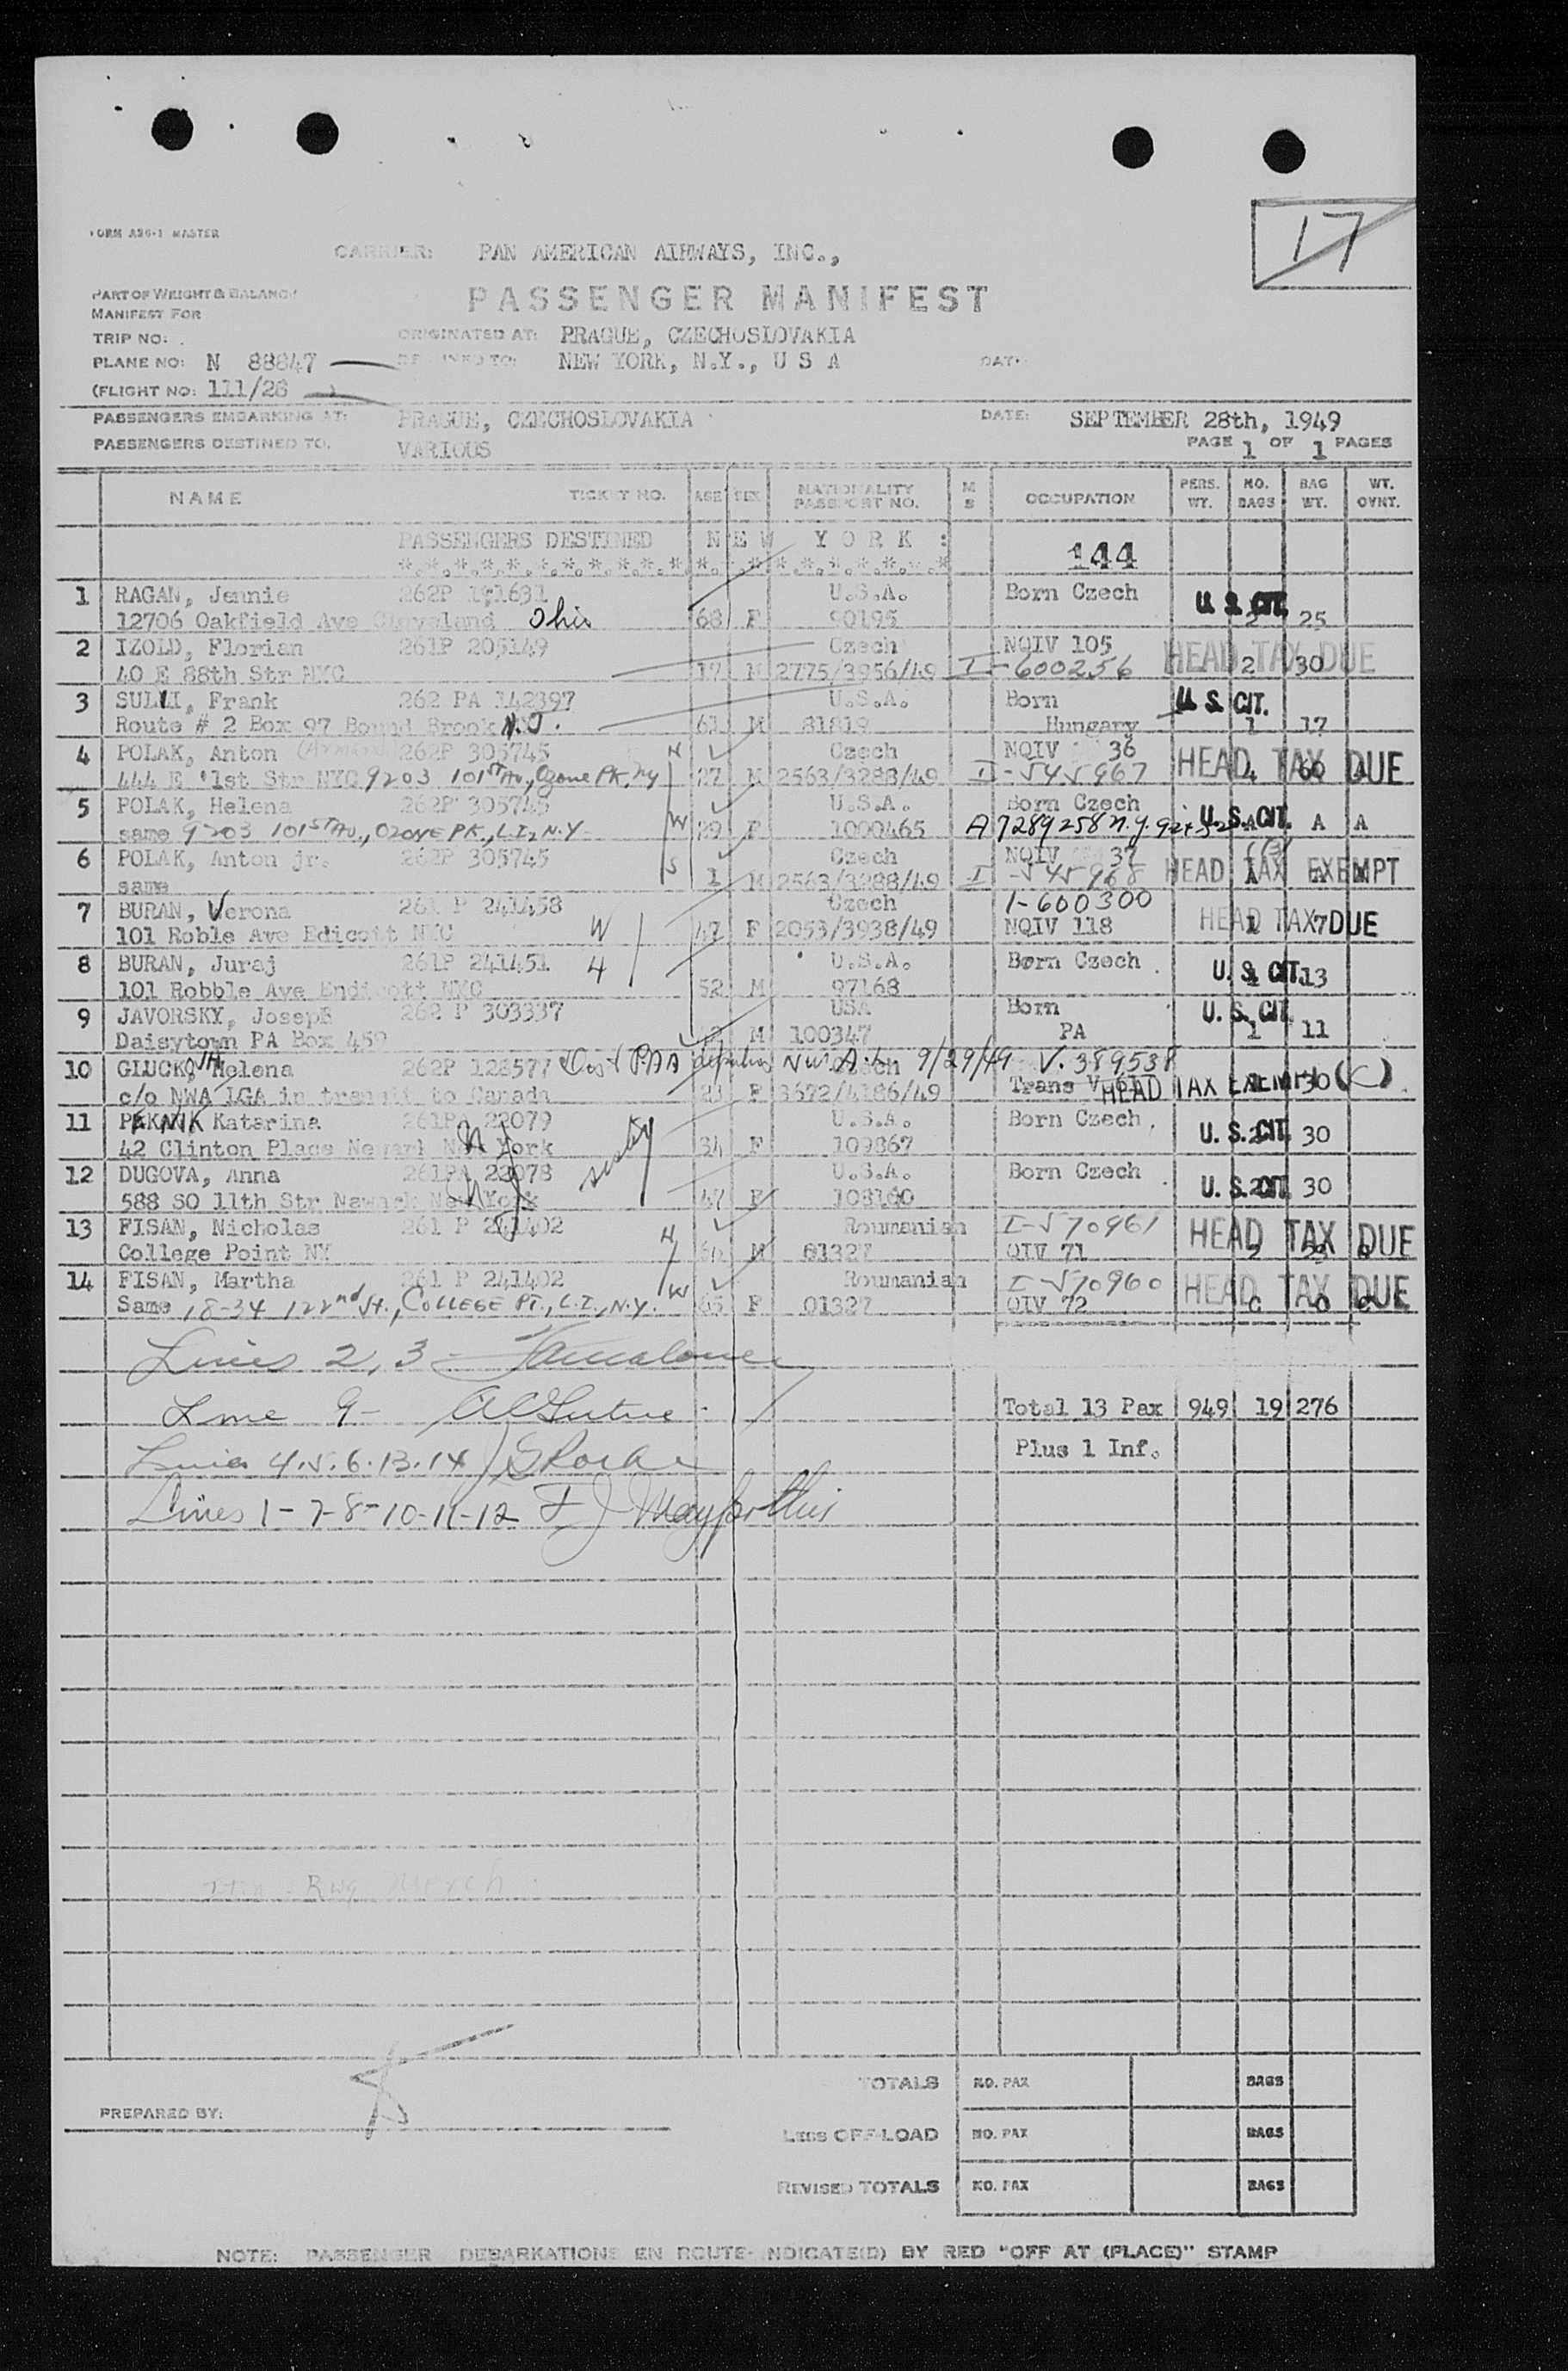 17
FORM A26-1 MASTER
CARRIER: PAN AMERICAN AIRWAYS, INC.,
PART OF WEIGHT & BALANCE
PASSENGER MANIFEST
MANIFEST FOR
TRIP NO: ORIGINATED AT: PRAGUE, CZECHOSLOVAKIA
PLANE NO: N 88847 DESTINED TO: NEW YORK, N.Y., U S A DAY:
(FLIGHT NO: 111/28
PASSENGERS EMBARKING AT: PRAGUE, CZECHOSLOVAKIA DATE: SEPTEMBER 28th, 1949
PASSENGERS DESTINED TO. VARIOUS PAGE 1 OF 1 PAGES
NAME TICKET NO. AGE SEX NATIONALITY PASSPORT NO. M S OCCUPATION PERS. WT. NO. BAGS BAG WT. WT. OVNT.
PASSENGERS DESTINED NEW YORK :
144
1 RAGAN, Jennie 262P 191631 U.S.A. Born Czech U. S. CIT.
12706 Oakfield Ave Cleveland Ohio 68 F 90195 2 25
2 IZOLD, Florian 261P 205149 Czech NQIV 105 HEAD TAX DUE
40 E 88th Str NYC 17 M 2775/3956/49 I-600256 2 30
3 SULLI, Frank 262 PA 142397 U.S.A. Born U. S. CIT.
Route # 2 Box 97 Bound Brook N.J. 61 M 81819 Hungary 1 17
4 POLAK, Anton 262P 305745 H Czech NQIV 36 HEAD TAX DUE
444 E '1st Str NYC 9203 101ST Av., Ozone PK, NY 27 M 2563/3288/49 I-545967 4 66 A
5 POLAK, Helena 262P 305745 U.S.A. Born Czech U. S. CIT.
same 9203 101ST Av., OZONE PK., L.I., N.Y. W 29 F 1000465 A7289258 N.Y. A A A
6 POLAK, Anton jr. 262P 305745 Czech NQIV 37 HEAD TAX EXEMPT
same S 1 M 2563/3288/49 I-545968
7 BURAN, Verona 261 P 241458 Czech 1-600300 HEAD TAX DUE
101 Roble Ave Edicott NYC W 47 F 2053/3938/49 NQIV 118 1 7
8 BURAN, Juraj 261P 241451 U.S.A. Born Czech U. S. CIT.
101 Robble Ave Endicott NYC 52 M 97168 13
9 JAVORSKY, Joseph 262 P 303337 USA Born U. S. CIT.
Daisytown PA Box 459 M 100347 PA 1 11
10 GLUCKOVA Helena 262P 128577 Czech 9/29/49 V. 389538
c/o NWA LGA in transit to Canada 23 F 3672/4186/49 Trans HEAD TAX EXEMPT 30 (C)
11 PEKNIK Katarina 261PA 22079 U.S.A. Born Czech U. S. CIT.
42 Clinton Place Newark New York NJ 34 F 109867 30
12 DUGOVA, Anna 261PA 22078 U.S.A. Born Czech U. S. CIT.
588 SO 11th Str Newark New York NJ 47 F 108160 30
13 FISAN, Nicholas 261 P 241402 H Roumanian I-570961 HEAD TAX DUE
College Point NY M 01327 QIV 71 2
14 FISAN, Martha 261 P 241402 Roumanian I-570960 HEAD TAX DUE
Same 18-34 122nd St., COLLEGE PT., L.I., N.Y. W 65 F 01327 QIV 72
Lines 2, 3 -
Line 9 - Total 13 Pax 949 19 276
Lines 4.5.6.13.14 Plus 1 Inf.
Lines 1-7-8-10-11-12
TOTALS NO. PAX BAGS
PREPARED BY:
LESS OFF-LOAD NO. PAX BAGS
REVISED TOTALS NO. PAX BAGS
NOTE: PASSENGER DEBARKATIONS EN ROUTE INDICATE(D) BY RED "OFF AT (PLACE)" STAMP